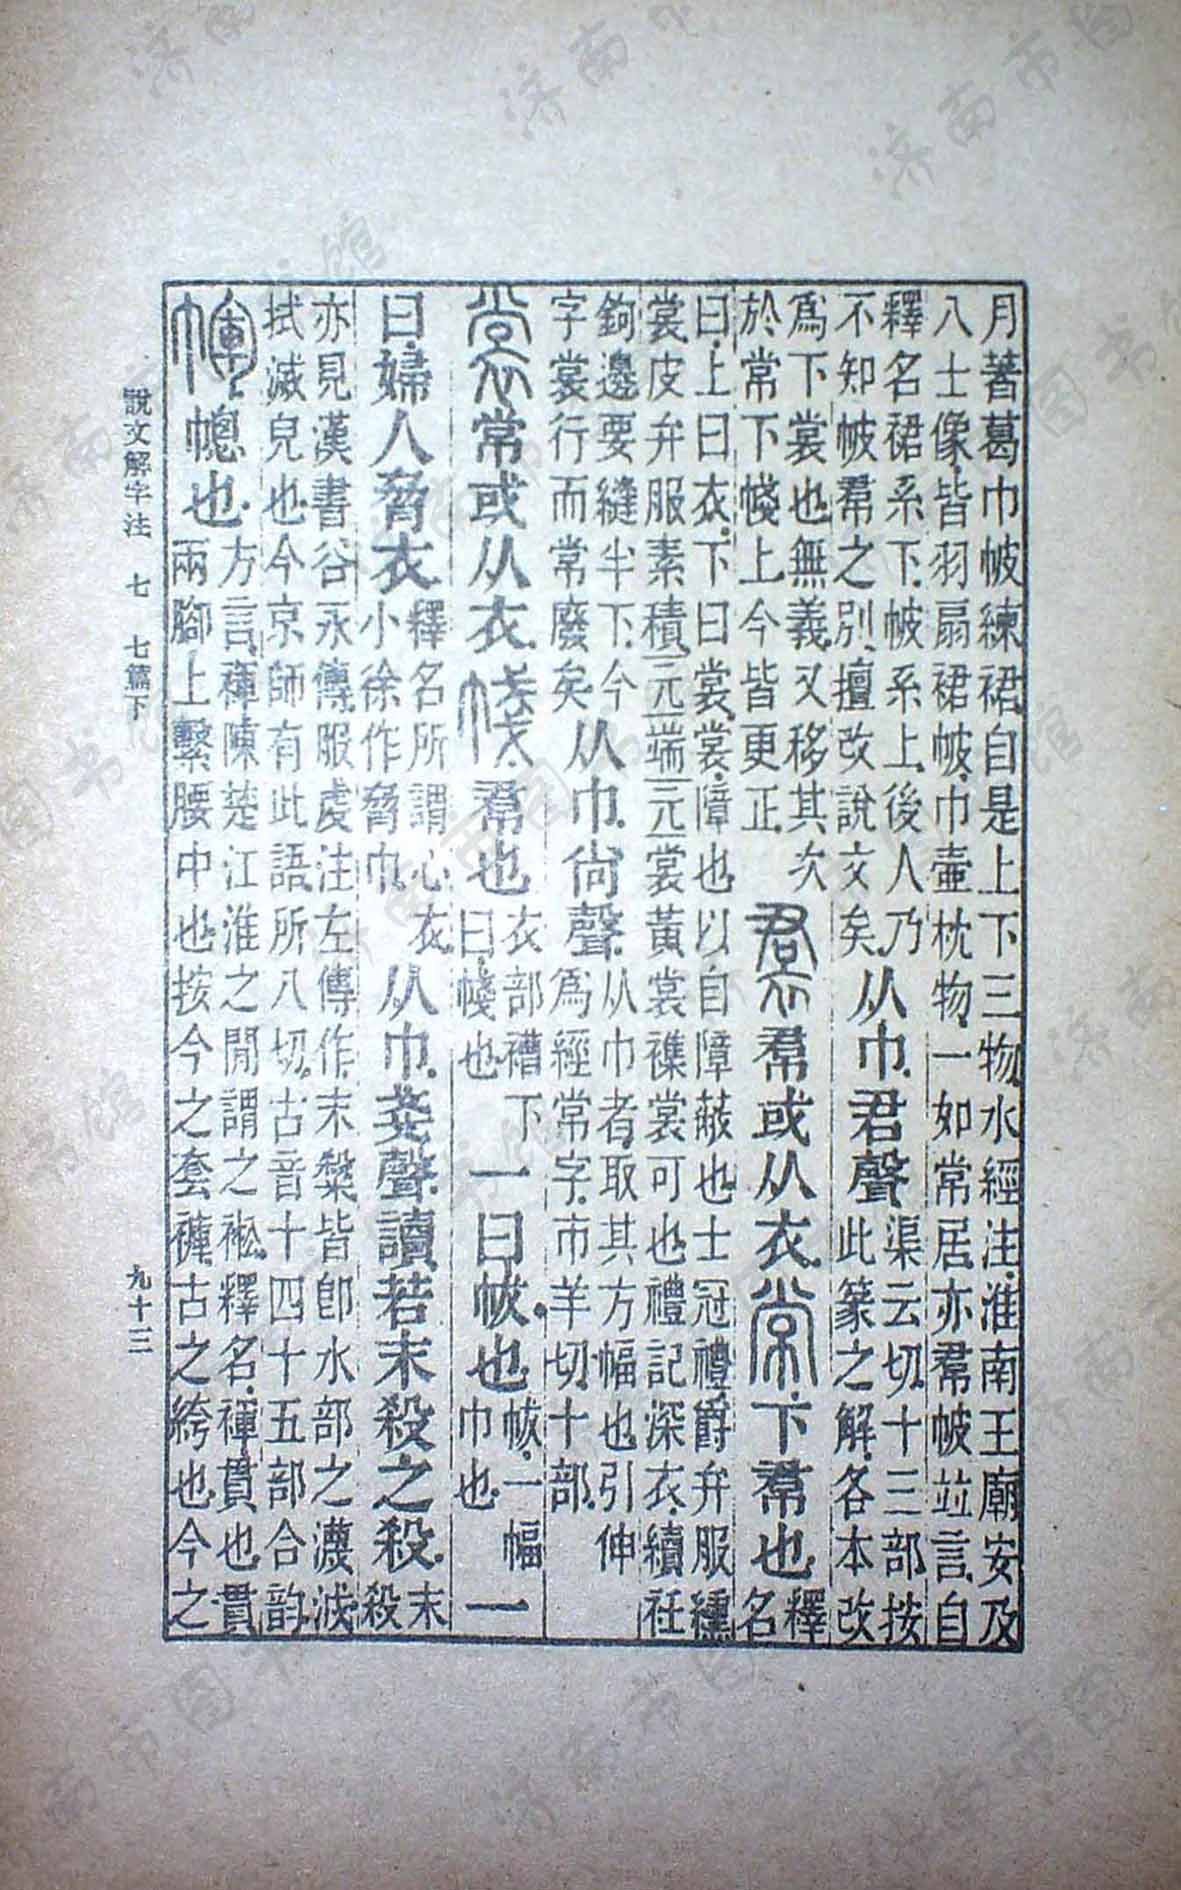 月著葛巾帔練裙自是上下三物水經注淮南王廟安及
八士像皆羽扇裙帔巾壺枕物一如常居亦帬帔竝言自
釋名裙系下帔系上後人乃
不知帔帬之別擅改說文矣
从巾君聲
渠云切十三部按
此篆之解各本改
爲下裳也無義又移其次
於常下帴上今皆更正
裙帬或从衣常下帬也
釋
名
曰上曰衣下曰裳裳障也以自障蔽也士冠禮爵弁服纁
裳皮弁服素積元端元裳黃裳襍裳可也禮記深衣續衽
鉤邊要縫半下今
字裳行而常廢矣
从巾尙聲
从巾者取其方幅也引伸
爲經常字市羊切十部
裳常或从衣帴帬也
衣部褿下
曰帴也
一曰帗也
帗一幅
巾也
一
曰婦人脅衣
釋名所謂心衣
小徐作脅巾
从巾戔聲讀若末殺之殺
末
殺
亦見漢書谷永傳服虔注左傳作末䊝皆卽水部之瀎泧
拭滅皃也今京師有此語所八切古音十四十五部合韵
幝幒也
方言褌陳楚江淮之閒謂之䘴釋名褌貫也貫
兩腳上繫腰中也按今之套褲古之絝也今之
說文解字注 七 七篇下 九十三
济南市图书馆